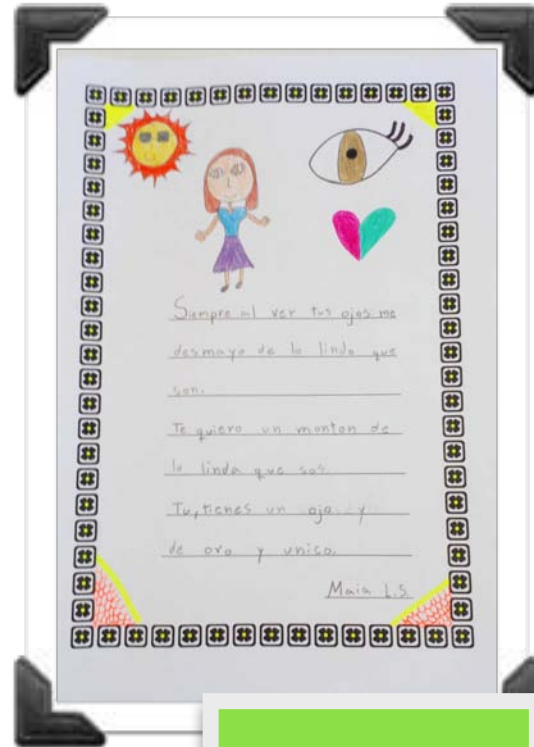 Siempre al ver tus ojos me
desmayo de lo lindo que
son.
Te quiero un monton de
lo linda que sos.
Tu, tienes un ojo y
de oro y unico.
Maia L.S.